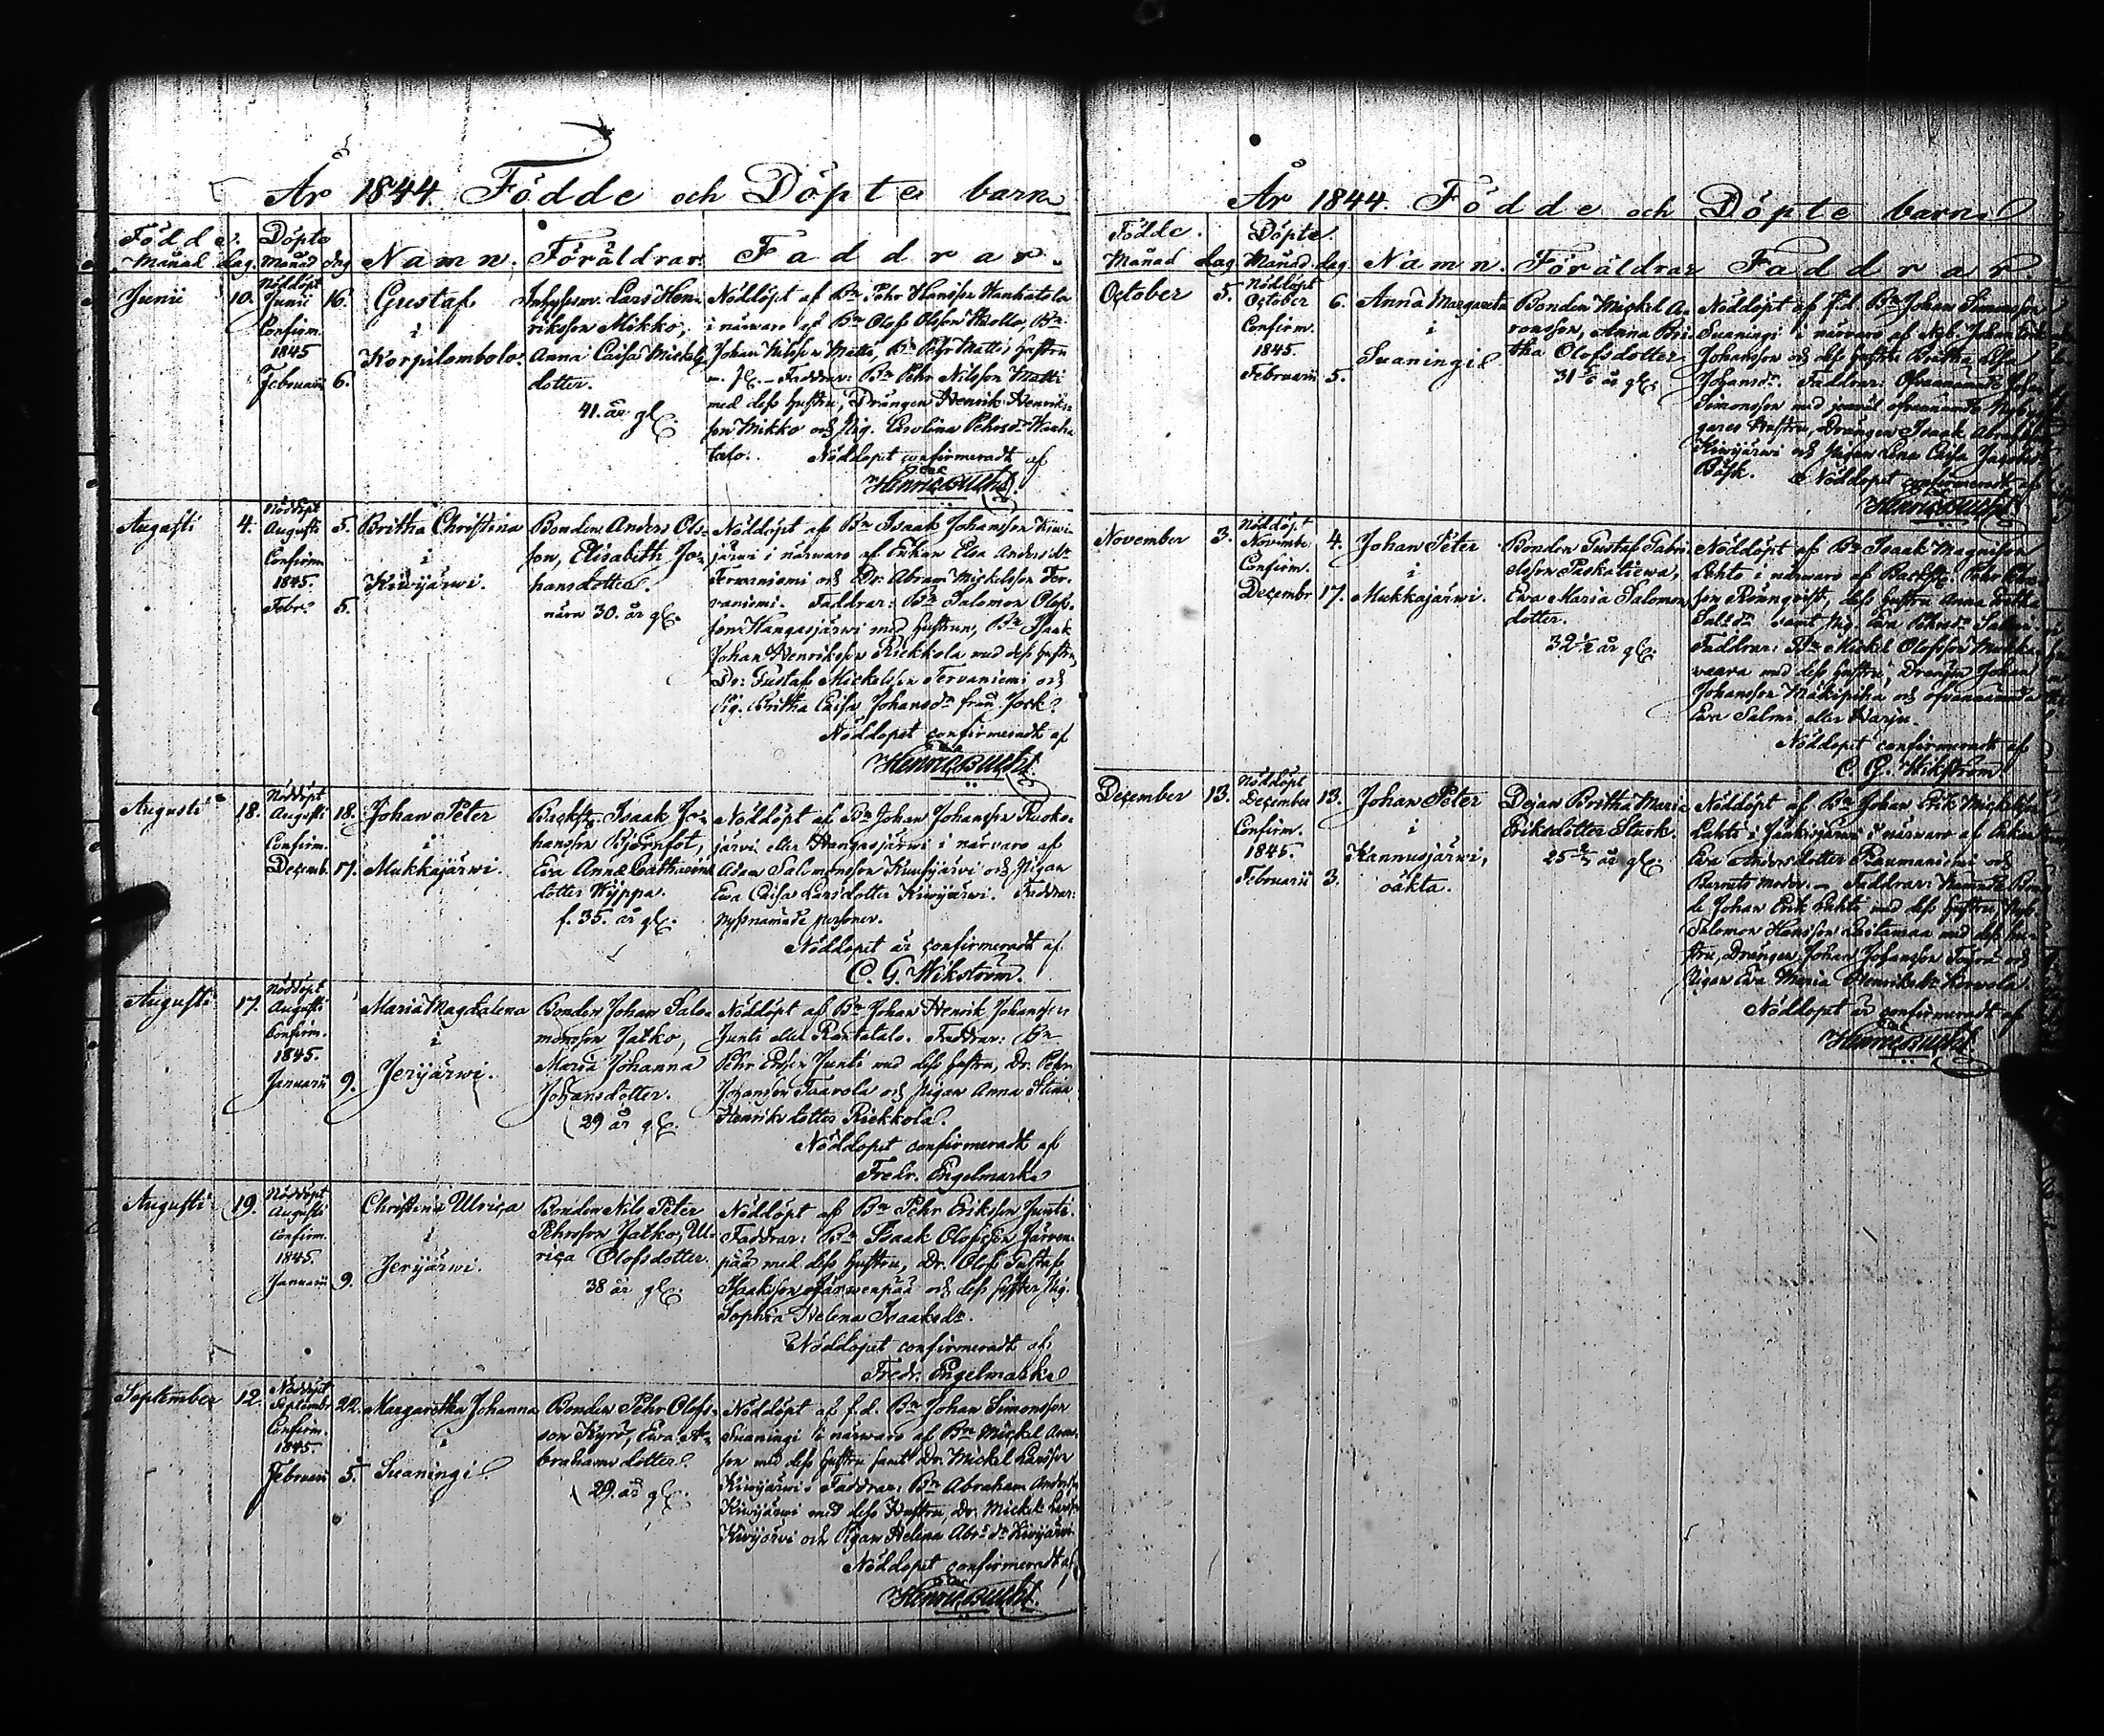 År 1844. Födde och Döpte barn
Födde. Döpte
Månad dag. Månad dag Namn. Föräldrar. Faddrar.
Junii 10. Nöddöpt Junii 16. Confirm. 1845 Februarii 6.
Gustaf
i
Korpilombolo.
Inhysesm. Lars Hen-
riksson Mikko,
Anna Caisa Mickels
dotter.
41. år gl.
Nöddöpt af Bn Pehr Hansson Wanhatalo
i närwaro af Bn Olof Olsson Kollo, Bn
Johan Nilsson Matti, Bn Pehr Mattis hustru
m. fl. – Faddrar: Bn Pehr Nilsson Matti
med dess hustru, Drängen Henrik Henriks-
son Mikko och Pig. Carolina Pehrsdr Wanha
talo. Nöddopet confirmeradt af
Henric Bucht.
Augusti 4. Nöddöpt Augusti 5. Confirm. 1845. Febr. 5.
Britha Christina
i
Kiwijärwi.
Bonden Anders Ols-
son, Elisabeth Jo-
hansdotter.
nära 30. år gl.
Nöddöpt af Bn Isaak Johansson Kiwi
järwi i närwaro af Enkan Elsa Andersdr
Terwaniemi och Dr. Abram Mickelsson Ter-
vaniemi. Faddrar: Bn Salomon Olofs-
son Hangasjärwi med hustrun, Bn Isaak
Johan Henriksson Riekkola med dess hustru,
Dr. Gustaf Mickelsson Tervaniemi och
Pig. Britha Caisa Johansdr från Jock.
Nöddopet confirmeradt af
Henric Bucht.
Augusti 18. Nöddöpt Augusti 18. Confirm. Decemb. 17.
Johan Peter
i
Mukkajärwi.
Backst. Isaak Jo-
hansson Björnfot,
Eva Anna Catharina
dotter Wyppa.
f. 35. år gl.
Nöddöpt af Bn Johan Johansson Ruoko-
järvi eller Hangasjärwi i närvaro af
Adam Salomonsson Kuusijärvi och Pigan
Ewa Caisa Larsdotter Kiwijärwi. Faddrar:
nyssnämnde personer.
Nöddopet är confirmeradt af
C. G. Wikström.
Augusti 17. Nöddöpt Augusti Confirm. 1845. Januarii 9.
Maria Magdalena
i
Jerijärwi.
Bonden Johan Salo-
monsson Jatko,
Maria Johanna
Johansdotter.
29 år gl.
Nöddöpt af Bn Johan Henrik Johansson
Junti eller Rantatalo. Faddrar: Bn
Pehr Ersson Junti med dess hustru, Dr. Pehr
Johansson Taavola och Pigan Anna Stina
Henriksdotter Riekkola.
Nöddopet confirmeradt af
Fredr. Engelmark
Augusti 19. Nöddöpt Augusti Confirm. 1845. Januarii 9.
Christina Ulrica
i
Jerijärwi.
Bonden Nils Peter
Pehrsson Jatko, Ul-
rica Olofsdotter.
38 år gl.
Nöddöpt af Bn Pehr Eriksson Junti.
Faddrar: Bn Isaak Olofsson Järven-
pää med dess hustru, Dr. Olof Gustaf
Isaksson Järwenpää och dess syster Pig.
Sophia Helena Isaaksdr.
Nöddopet confirmeradt af
Fredr. Engelmark
September 12. Nöddöpt Septembr 22. Confirm. 1845 Februarii 5.
Margaretha Johanna
i
Suaningi
Bonden Pehr Olofs-
son Kyrö, Ewa A-
brahamsdotter.
29. år gl.
Nöddöpt af f.d. Bn Johan Simonsson
Suaningi i närwaro af Bn Mickel Arons-
son med dess hustru samt Dr. Mickel Larsson
Kiwijärwi. Faddrar: Bn Abraham Andersson
Kiwijärwi med dess Hustru, Dr. Mickel Larsson
Kiwijärvi och Pigan Helena Abr.sdr Kiwijärwi
Nöddopet confirmeradt af
Henric Bucht.
År 1844. Födde och Döpte barn
Födde. Döpte.
Månad dag Månad. dag. Namn. Föräldrar Faddrar
October 5. Nöddöpt October 6. Confirm. 1845. Februarii 5.
Anna Margareta
i
Suaningi
Bonden Mickel A-
ronsson, Anna Bri-
tha Olofsdotter
31 år gl.
Nöddöpt af f.d. Bn Johan Simonsson
Suaningi i närwaro af Nyb. Johan
Johansson och dess hustru Britha Lisa
Johansdr. Faddrar: Ofvannämnde Johan
Simonsson med jemväl ofvannämnde Nybyg-
gares Hustru, Drängen Isaak Abramsson
Kiwijärwi och Pigan Lena Caisa Jacobsdr
Bäsk. Nöddopet confirmeradt af
Henric Bucht.
November 3. Nöddöpt Novembr 4. Confirm. Decembr 17.
Johan Peter
i
Mukkajärwi.
Bonden Gustaf Gabri-
elsson Paskatiewa,
Ewa Maria Salomons
dotter.
32 1/2 år gl.
Nöddöpt af Bn Isaak Magnisson
Lehto i närwaro af Backst. Pehr
son Rönnqvist, dess hustru Anna Britha
Sal.sdr samt Pig. Eva Pehrsdr Salmi.
Faddrar: Bn Mickel Olofsson Mukka
waara med dess hustru, Drängen Johan
Johansson Mäkipiha och ofvannämnde
Eva Salmi eller Harju.
Nöddopet confirmeradt af
C. G. Wikström
December 13. Nöddöpt December 13. Confirm. 1845. Februarii 3.
Johan Peter
i
Kannusjärwi,
oäkta.
Dejan Britha Maria
Eriksdotter Sturk.
25 år gl.
Nöddöpt af Bn Johan Erik Mickelsson
Lehto i Jänkisjärwi i närwaro af Enkan
Eva Andersdotter Raumaniemi och
Barnets moder. – Faddrar: Nämnde Bon-
de Johan Erik Lehto med dess hustru, Nyb.
Salomon Hansson Leitamaa med dess hu-
stru, Drängen Johan Johansson och
Pigan Ewa Maria Henriksdr Korvola.
Nöddopet är confirmeradt af
Henric Bucht